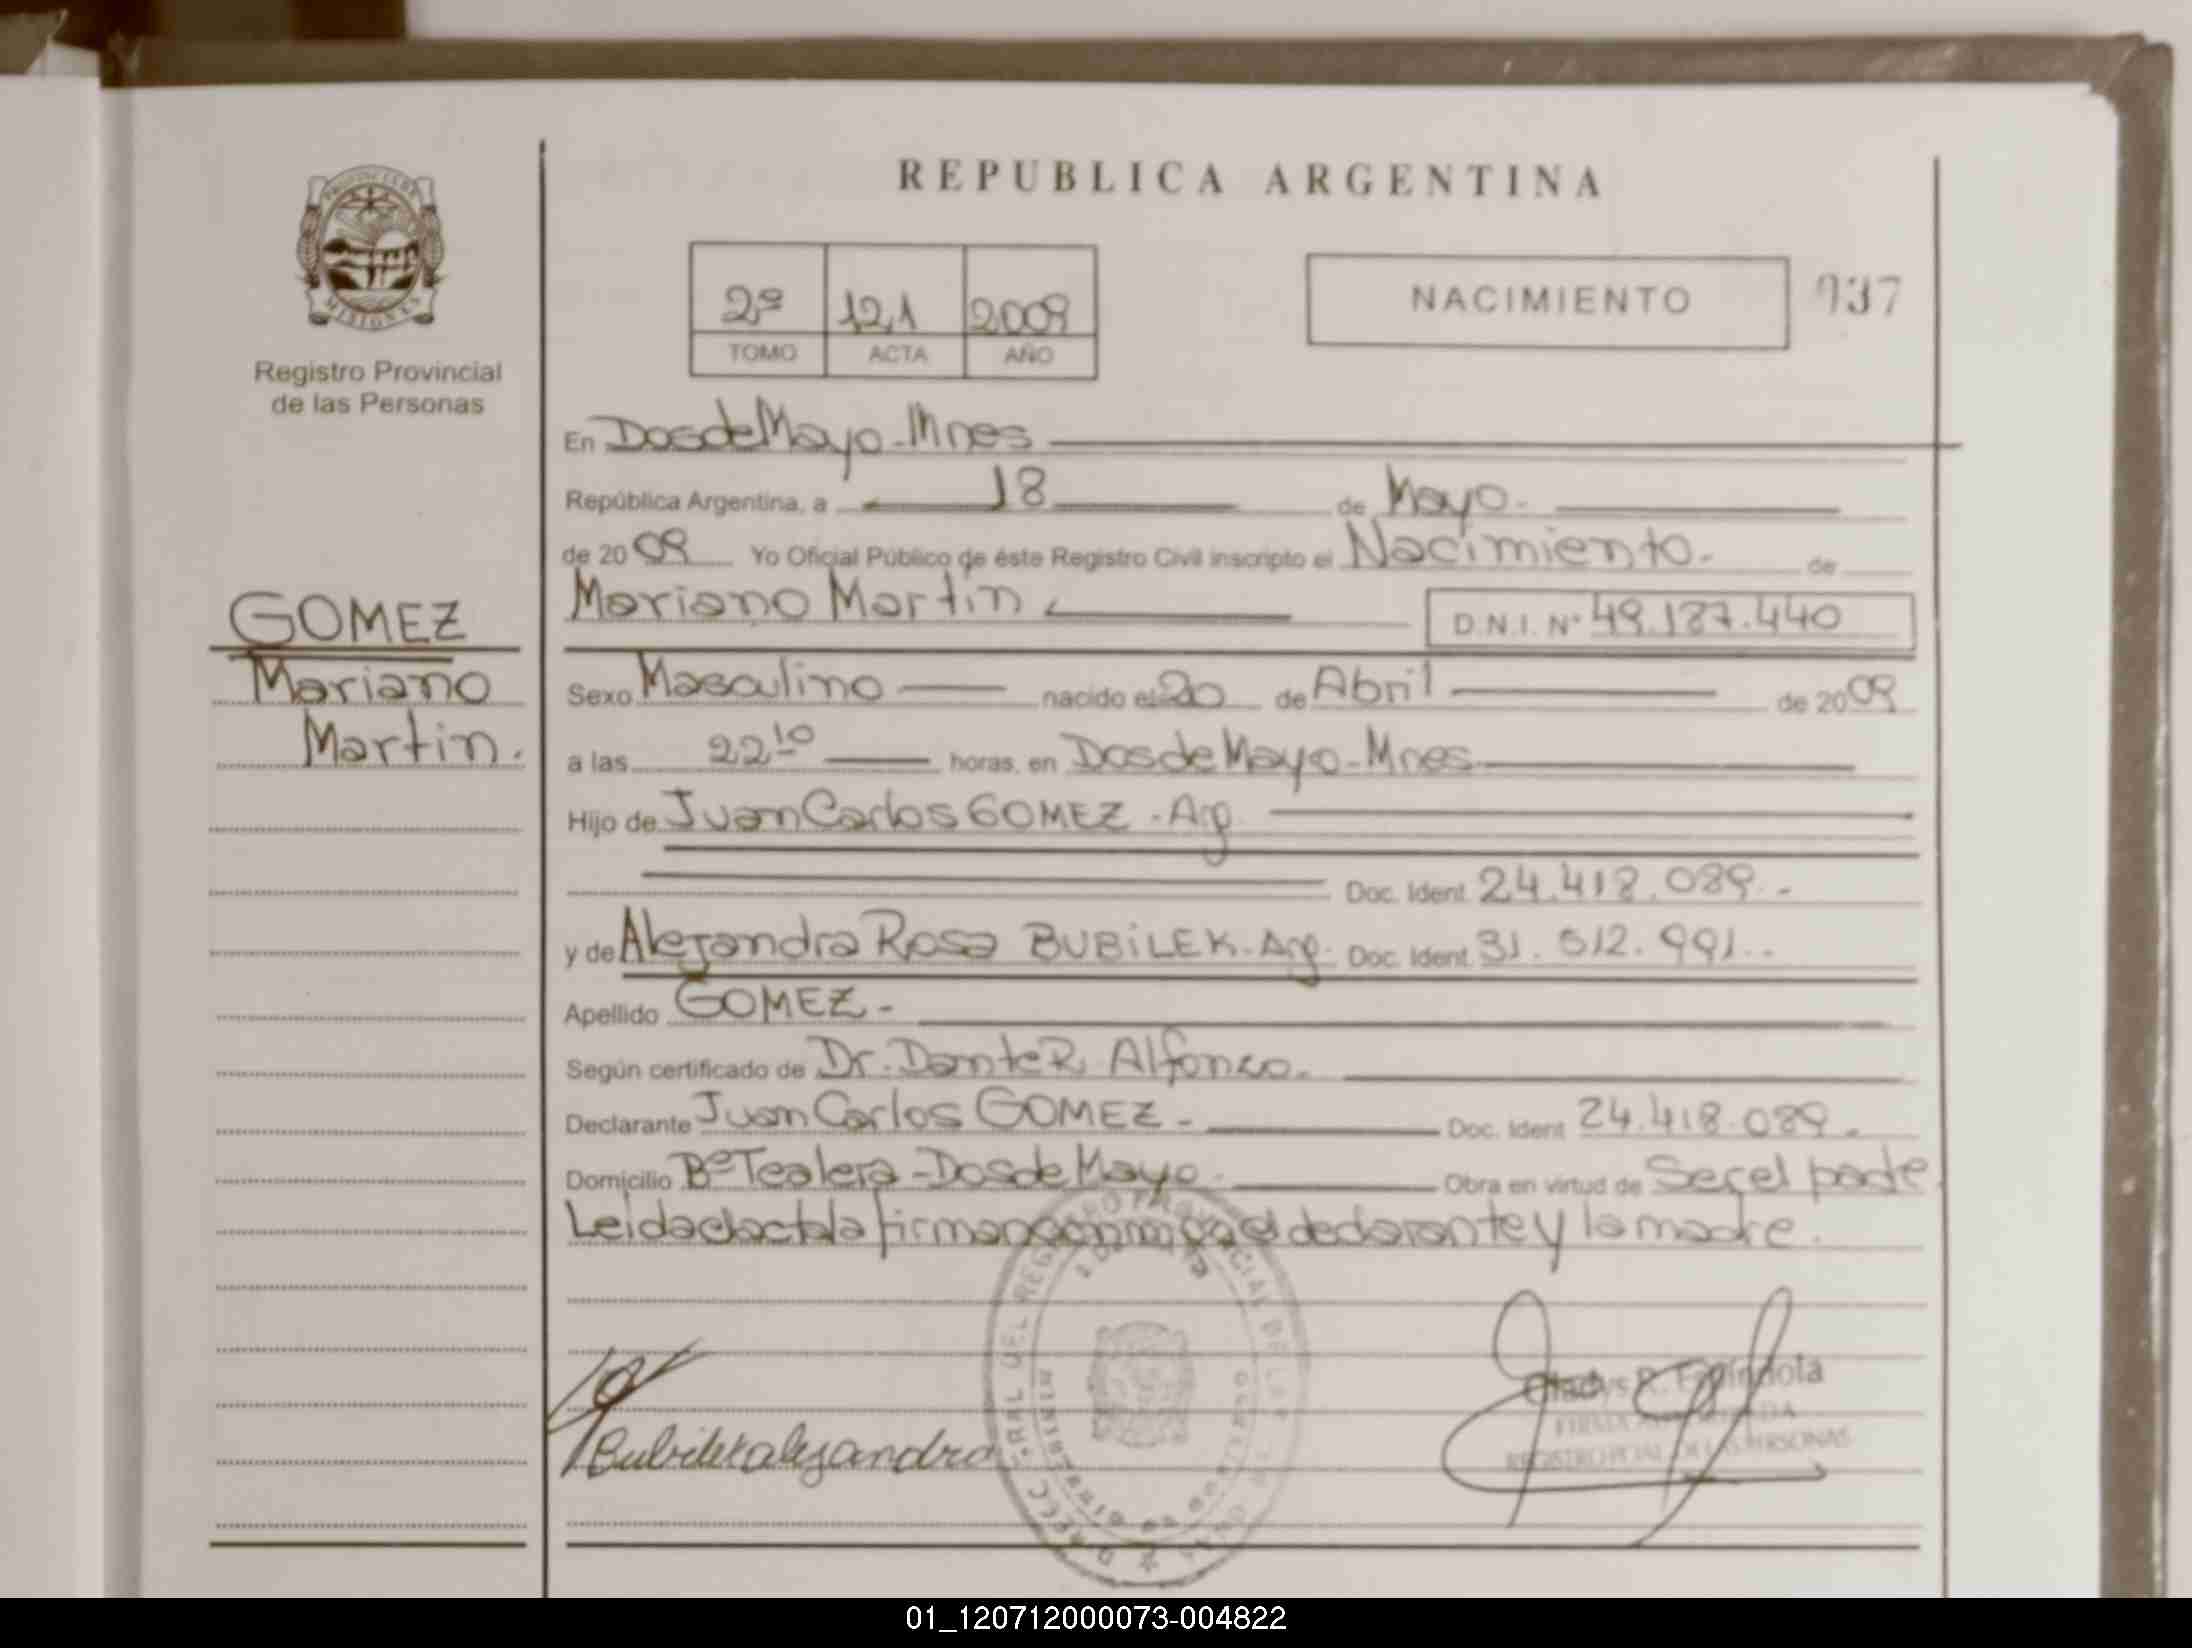 REPUBLICA ARGENTINA
MISIONES
Registro Provincial
de las Personas
2º 121 2009
TOMO ACTA AÑO
NACIMIENTO
937
En Dos de Mayo - Mnes
República Argentina, a 18 de Mayo.
de 2009 Yo Oficial Público de éste Registro Civil inscripto el Nacimiento. de
Mariano Martin D.N.I. Nº 49.187.440
GOMEZ
Mariano
Martin.
Sexo Masculino nacido el 20 de Abril de 2009
a las 22 10 horas, en Dos de Mayo - Mnes
Hijo de Juan Carlos GOMEZ - Arg
Doc. Ident. 24.418.089.-
y de Alejandra Rosa BUBILEK - Arg. Doc. Ident. 31.512.991.-
Apellido GOMEZ -
Según certificado de Dr. Dante R. Alfonzo.
Declarante Juan Carlos GOMEZ - Doc. Ident. 24.418.089.-
Domicilio Bº Tealera - Dos de Mayo. Obra en virtud de Ser el padre.
Leida el acta la firman conmigo el declarante y la madre.
Bubilek alejandra
Gladys R. Espíndola
REGISTRO PCIAL. DE LAS PERSONAS
01_120712000073-004822